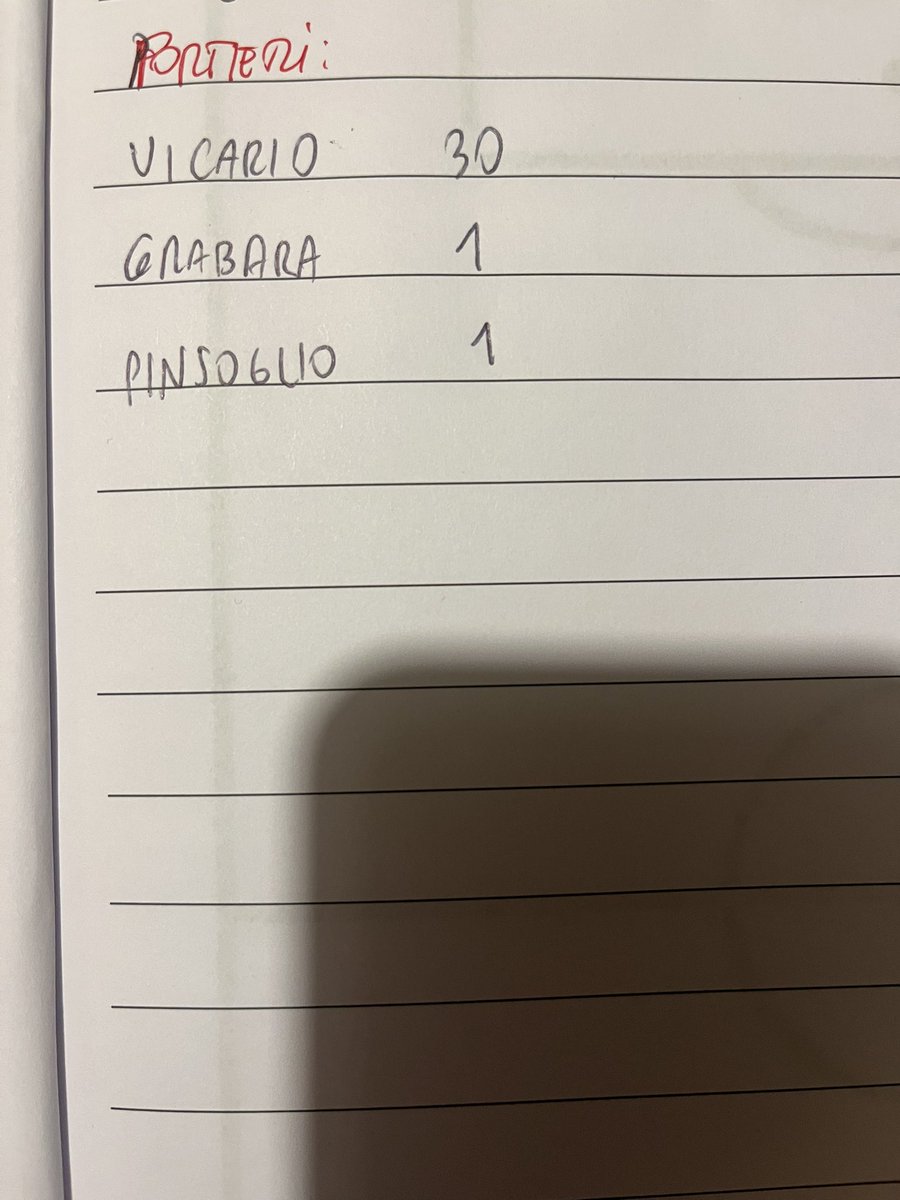 PORTIERI:
VICARIO 30
GRABARA 1
PINSOGLIO 1